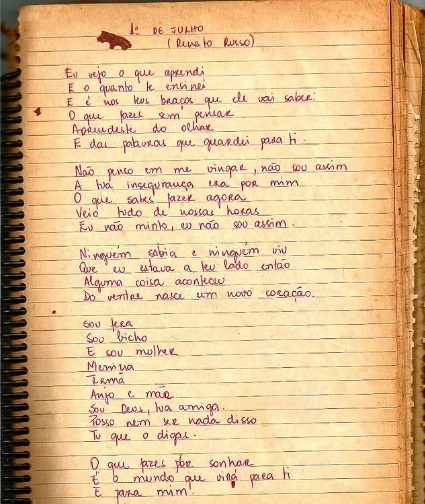 1º DE JULHO
(Renato Russo)
Eu vejo o que aprendi
E o quanto te ensinei
E é nos teus braços que ele vai saber.
O que fazes sem pensar
Aprendeste do olhar
E das palavras que guardei para ti.
Não penso em me vingar, não sou assim
A tua insegurança era por mim
O que sabes fazer agora
Veio tudo de nossas horas
Eu não minto, eu não sou assim.
Ninguém sabia e ninguém viu
Que eu estava a teu lado então
Alguma coisa aconteceu
Do ventre nasce um novo coração.
Sou fera
Sou bicho
E sou mulher
Menina
Irmã
Anjo e mãe
Sou Deus, tua amiga.
Posso nem ser nada disso
Tu que o digas.
O que fazes por sonhar
É o mundo que virá para ti
E para mim.